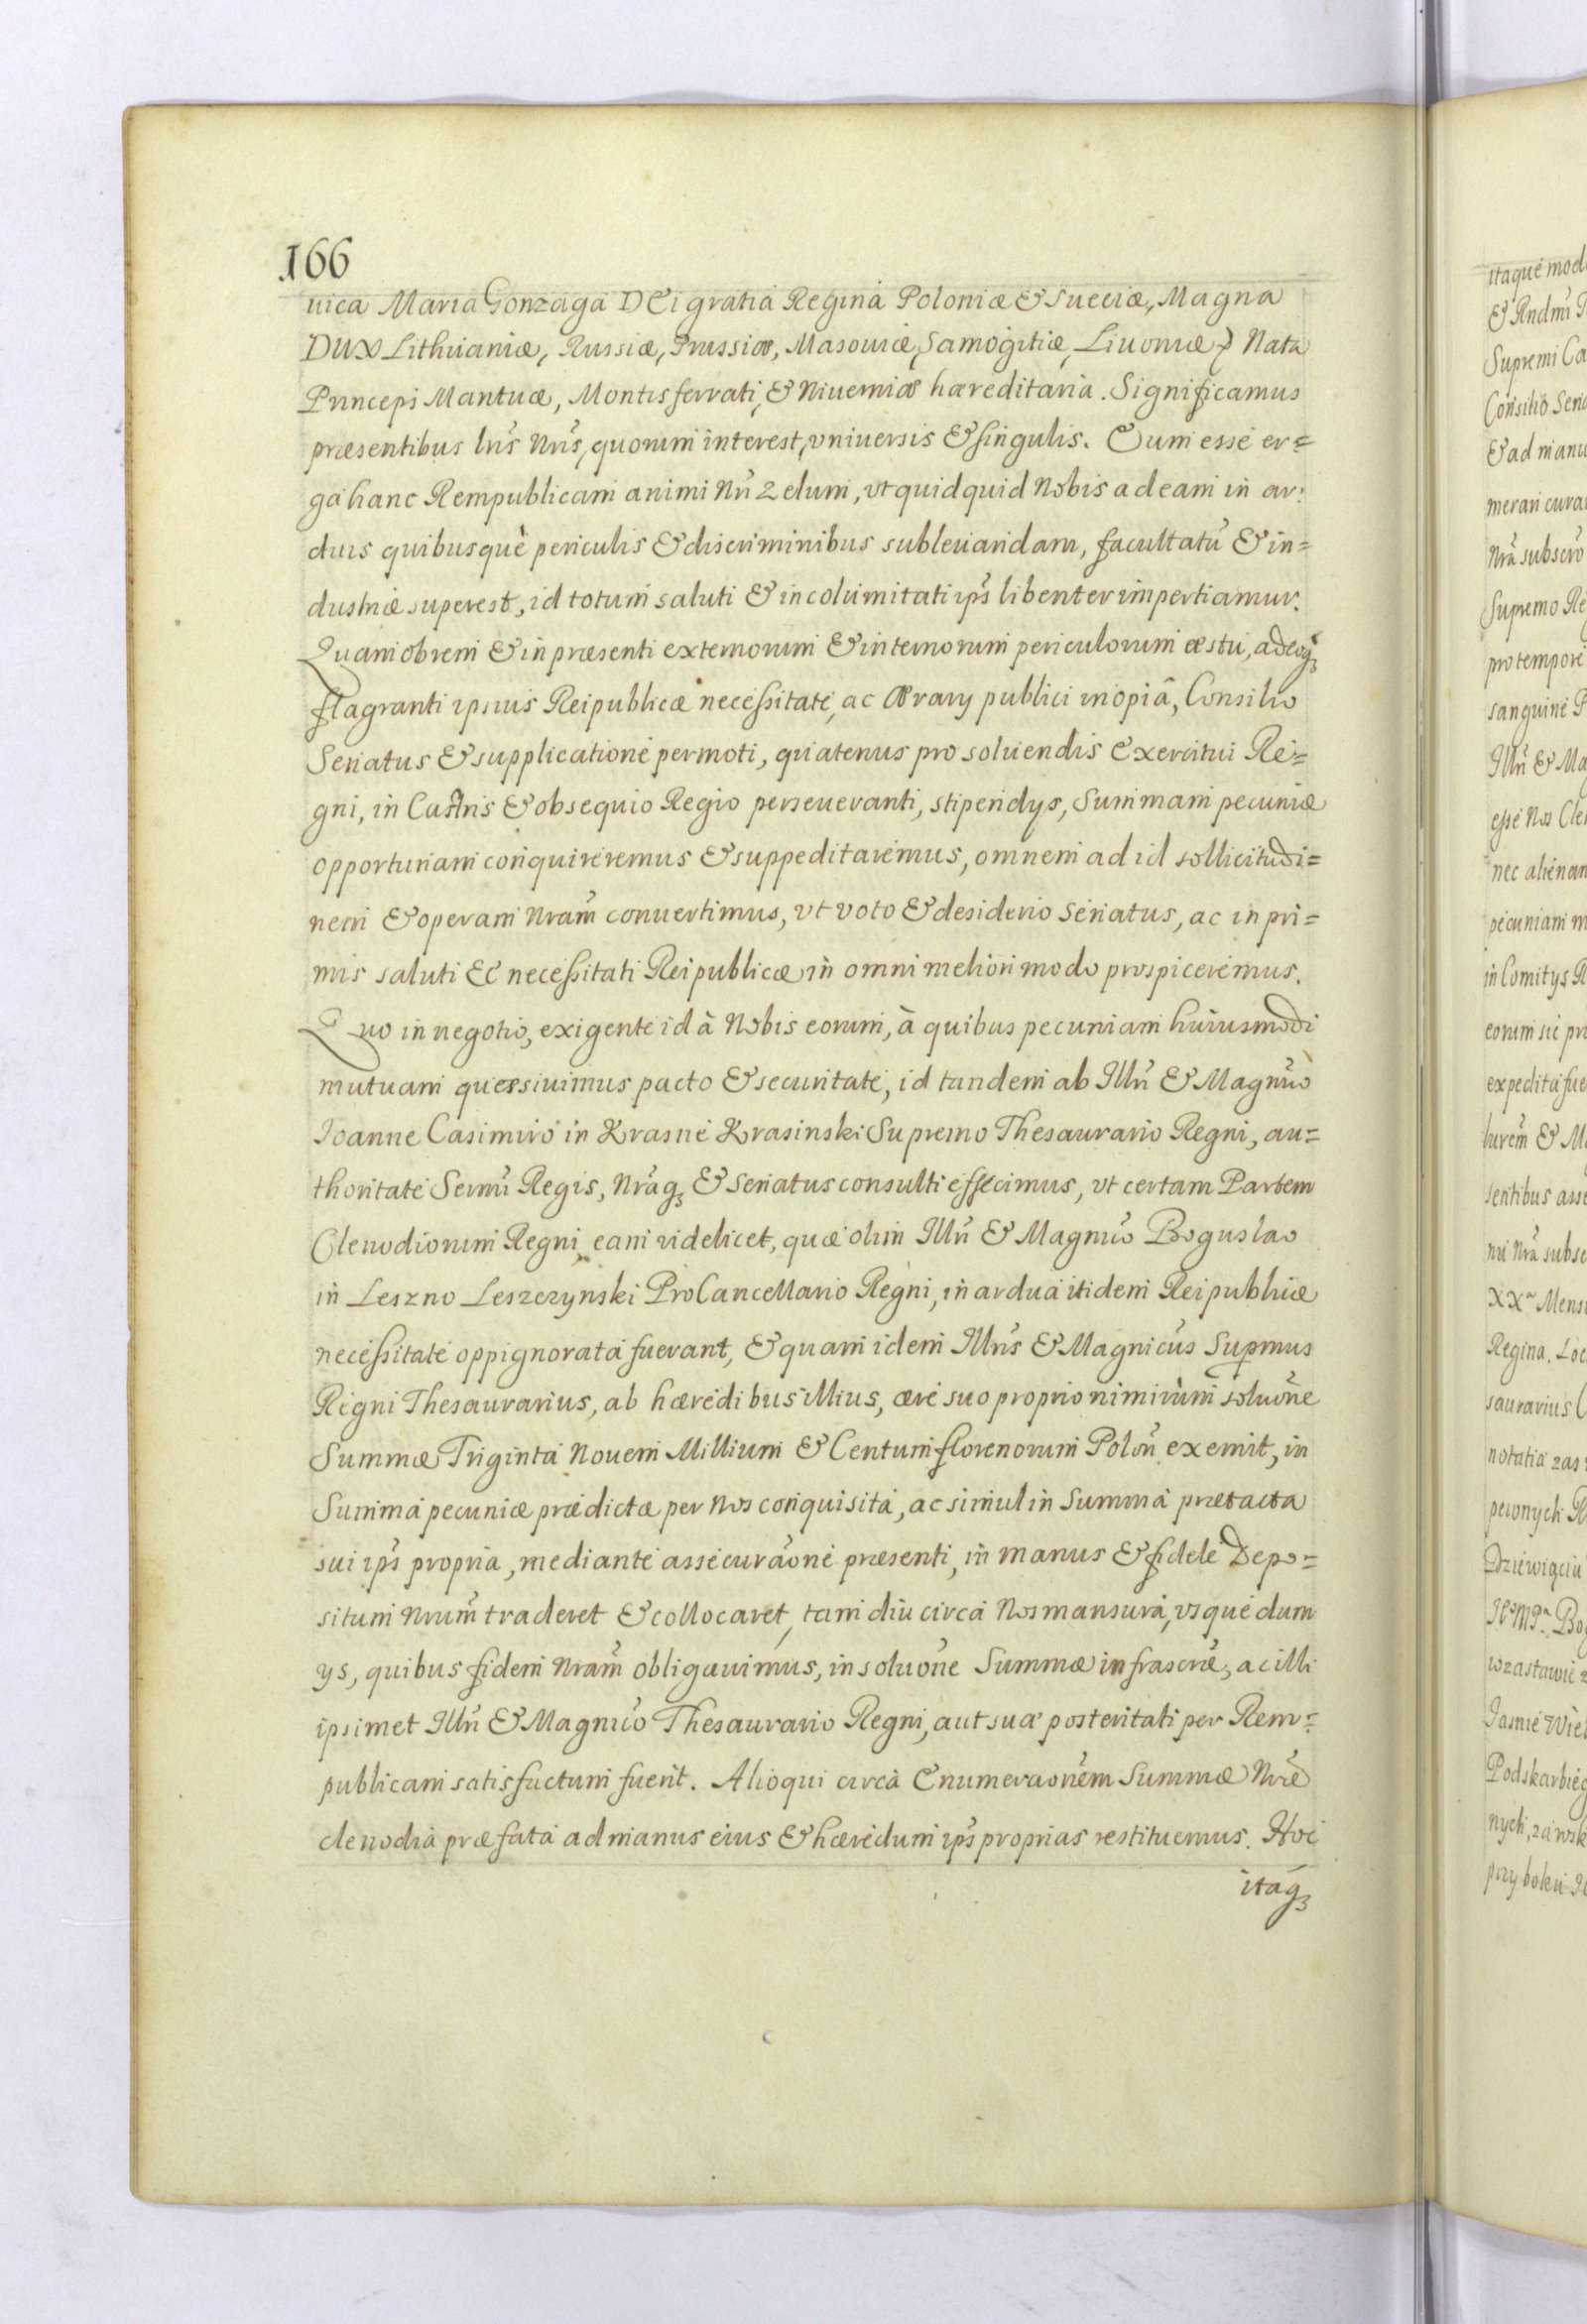 166
uica Maria Gonzaga DEi gratia Regina Poloniæ & Sueciæ, Magna
DUX Lithuaniæ, Russiæ, Prussiæ, Masouiæ, Samogitiæ, Liuoniæ, Nata
Princeps Mantuæ, Montisferrati, & Niuerniæ hæreditaria. Significamus
præsentibus lrıs̃ Nrıs̃, quorum interest, vniuersis & singulis. Eum esse er=
ga hanc Rempublicam animi Nrĩ Zelum, vt quidquid Nobis ad eam in ar:
duis quibusque periculis & discriminibus subleuandam, facultatũ & in=
dustriæ superest, id totum saluti & incolumitati ips̃ libenter impertiamur.
Quamobrem & in præsenti externorum & internorum periculorum æstu, adeoq3
flagranti ipsius Reipublicæ necessitate, ac Ærarÿ publici inopiâ, Consilio
Senatus & supplicatione permoti, quatenus pro soluendis Exercitui Re=
gni, in Castris & obsequio Regio perseueranti, stipendÿs, Summam pecuniæ
opportunam conquireremus & suppeditaremus, omnem ad id sollicitudi=
nem & operam Nram̃ conuertimus, vt voto & desiderio Senatus, ac in pri=
mis saluti & necessitati Reipublicæ in omni meliori modo prospiceremus.
Quo in negotio, exigente id à Nobis eorum, à quibus pecuniam huiusmodi
mutuam quæsiuimus pacto & securitate, id tandem ab Illrı̃ & Magnıc̃o
Ioanne Casimiro in Krasne Krasinski Supremo Thesaurario Regni, au=
thoritate Sermı̃ Regis, Nrãq3 & Senatus consulti effecimus, vt certam Partem
Clenodiorum Regni, eam videlicet, quæ olim Illrı̃ & Magnıc̃o Boguslao
in Leszno Leszczynski ProCancellario Regni, in ardua itidem Reipublicæ
necessitate oppignorata fuerant, & quam idem Illrıs̃ & Magnicũs Supmus
Regni Thesaurarius, ab hæredibus illius, ære suo proprio nimirum soluõne
Summæ Triginta Nouem Millium & Centum florenorum Polon̄ exemit, in
Summa pecuniæ prædictæ per Nos conquisita, ac simul in Summa prætacta
sui ips̃ propria, mediante assecuraõne præsenti, in manus & fidele Depo=
situm Nrum̃ traderet & collocaret, tam diu circa Nos mansura, vsque dum
ÿs, quibus fidem Nram̃ obligauimus, in soluõne Summæ infrascræ̃, ac illi
ipsimet Illrı̃ & Magnıc̃o Thesaurario Regni, aut suæ posteritati per Rem=
publicam satisfactum fuerit. Alioqui circa Enumeraonẽm Summæ Nræ̃
clenodia præfata ad manus eius & hæredum ips̃ proprias restituemus. Hoc
itaq3